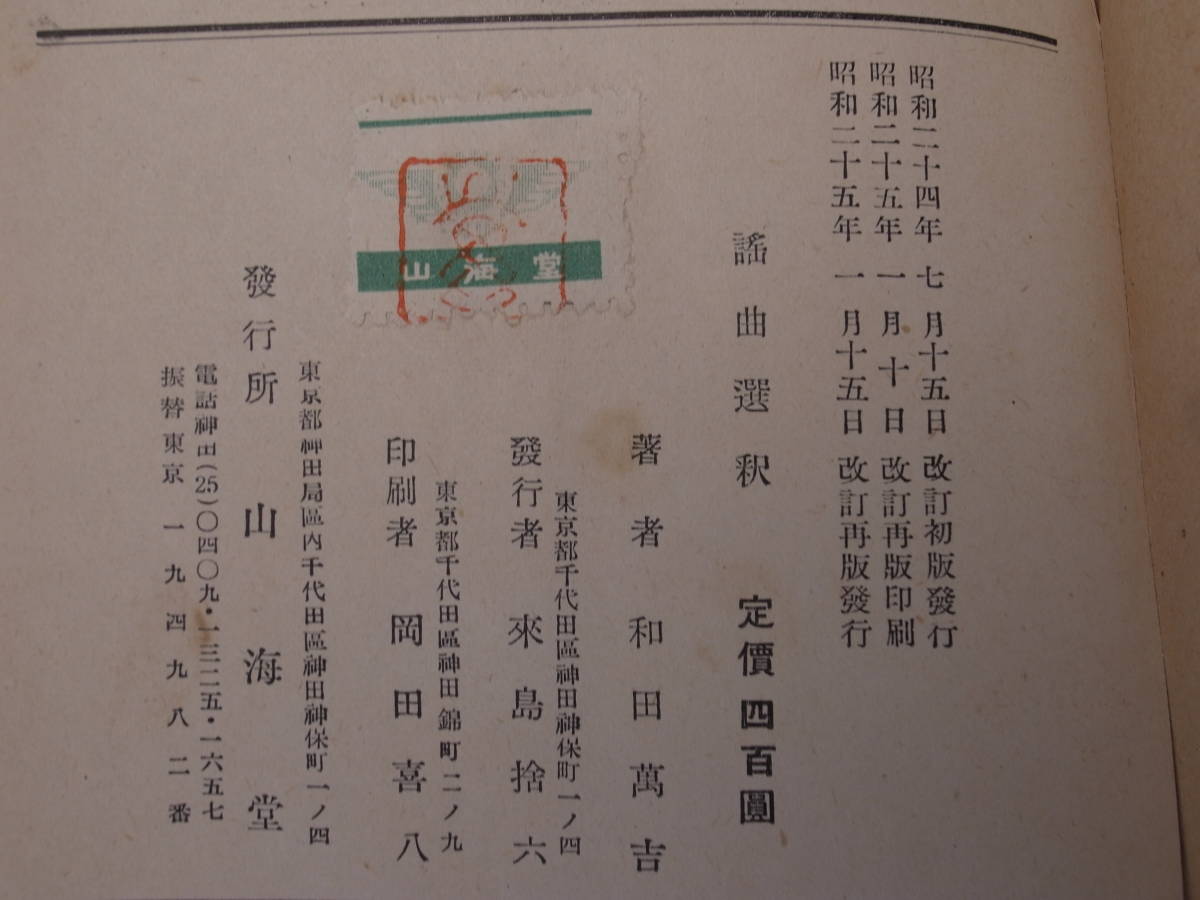 昭和二十四年七月十五日改訂初版發行
昭和二十五年一月十日改訂再版印刷
昭和二十五年一月十五日改訂再版發行
謠曲選釈 定價四百圓
著者 和田萬吉
東京都千代田區神田神保町一ノ四
發行者 來島捨六
東京都千代田區神田錦町二ノ九
印刷者 岡田喜八
山海堂
東京都神田局區内千代田區神田神保町一ノ四
發行所 山海堂
電話神田(25)〇四〇九・一三二五・一六五七
振替東京一九四九八二番